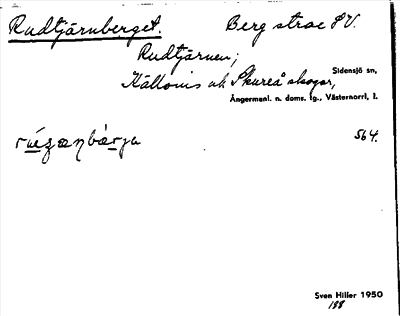 Rudtjärnberget. Berg strax SV.
Rudtjärnen;
Sidensjö sn,
Källoms och Skureå skogar,
Ångermanl. n. doms. lg., Västernorrl. l.
564.
Sven Hiller 1950
188